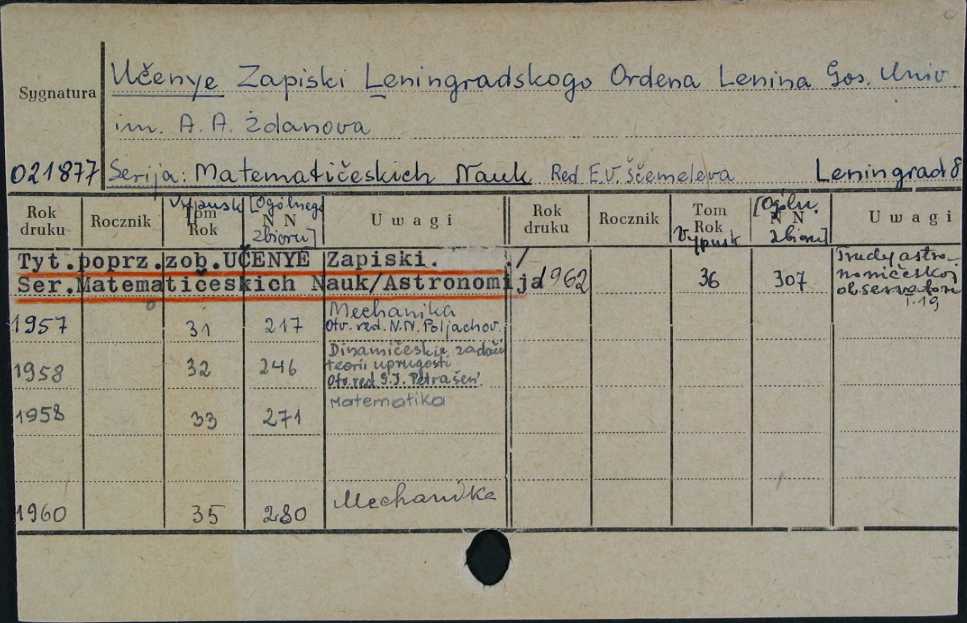 Učenye Zapiski Leningradskogo Ordena Lenina Gos. Univ.
Sygnatura
im. A. A. Ždanova
021877 Serija: Matematičeskich Nauk Red E.V. Ščemeleva Leningrad 8
Rok druku Rocznik Vypusk Tom Rok [Ogólnego N N zbioru] Uwagi Rok druku Rocznik Tom Rok Vypusk [Ogóln. N N zbioru] Uwagi
Tyt.poprz.zob.UČENYE Zapiski.
Ser.Matematičeskich Nauk/Astronomija/
1962 36 307 Trudy astro-
nomičeskoj
observatorii
T. 19
1957 31 217 Mechanika
Otv. red. N.N. Poljachov.
1958 32 246 Dinamičeskie zadači
teorii uprugosti
Otv. red. G.I. Petrašen'.
1958 33 271 Matematika
1960 35 280 Mechanika